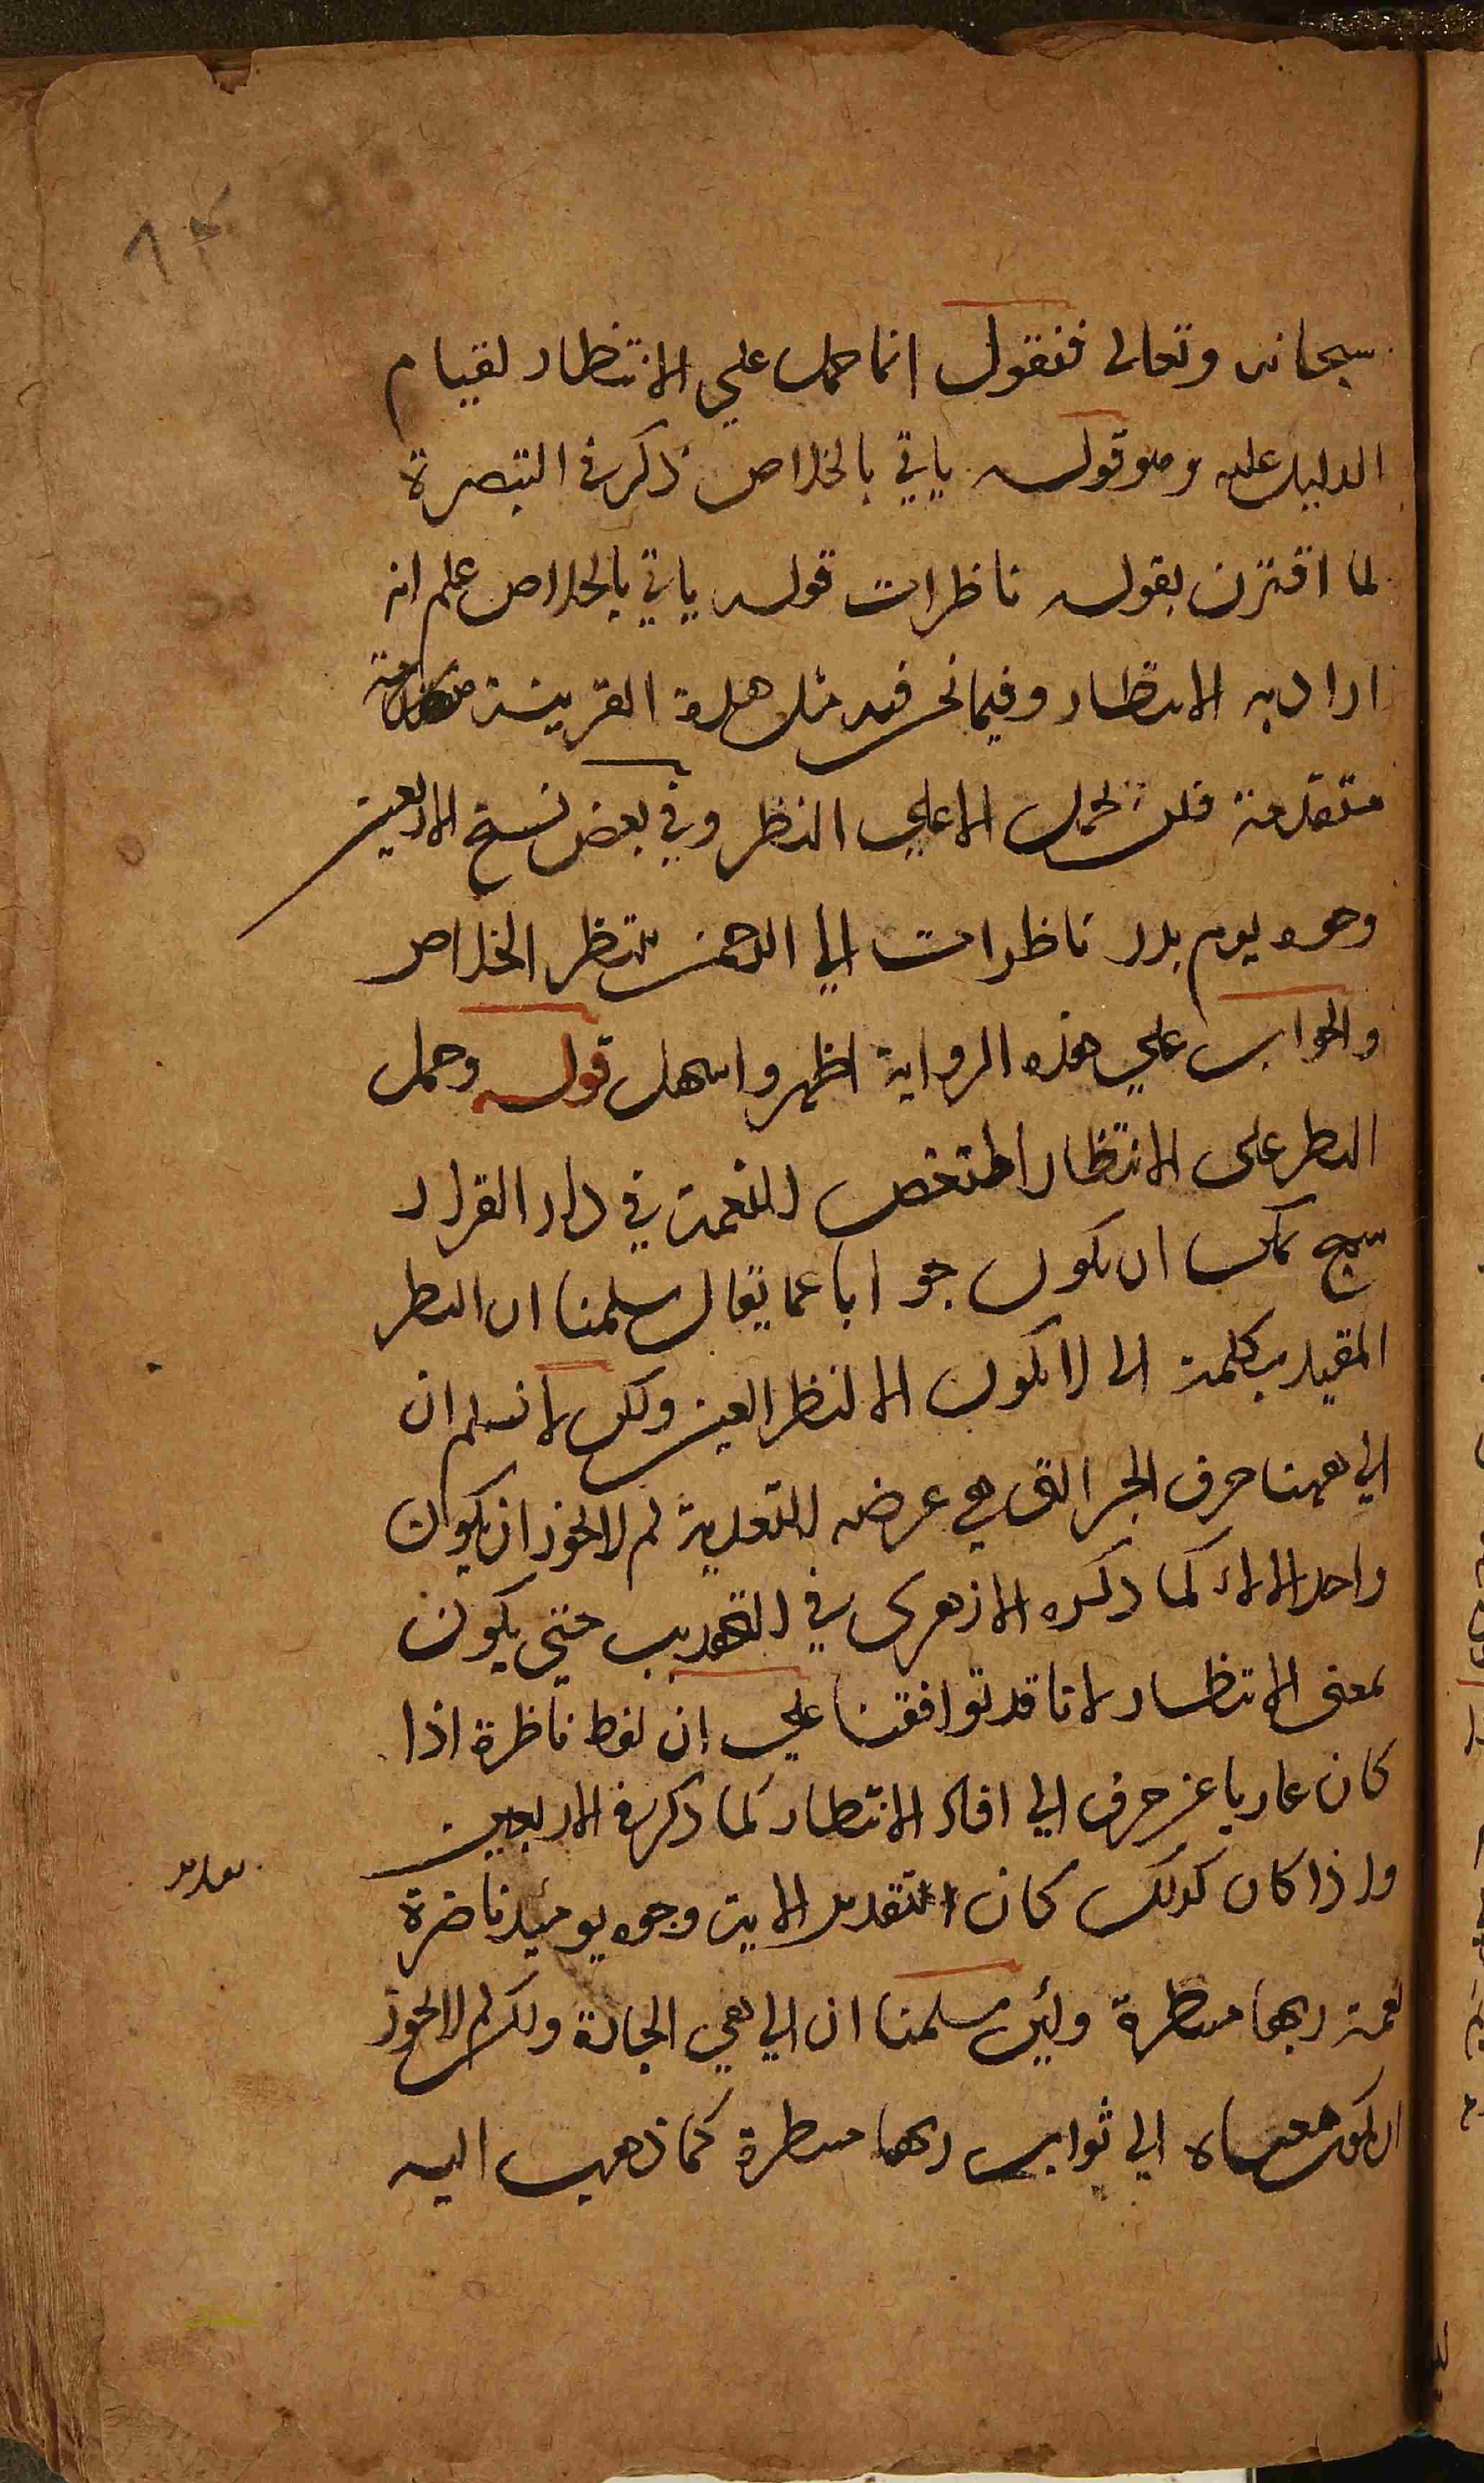 ١٣
سبحانه وتعالى فنقول انما حمل علي الانتظار لقيام
الدليل عليه وهو قوله ياتي بالخلاص ذكر في التبصرة
لما اقترن بقوله ناظرات قوله ياتي بالخلاص علم انه
اراد به الانتظار وفيما نحن فيه مثل هذه القرينة
متقدمة فلن تحمل الا علي النظر وفي بعض نسخ الاربعين
وجوه يوم بدر ناظرات الي الرحمن تنتظر الخلاص
والجواب علي هذه الرواية اظهر واسهل قوله وحمل
النظر على الانتظار المنغص للنعمة في دار القرار
سمج يمكن ان يكون جوابا عما يقال سلمنا ان النظر
المقيد بكلمة الى لا يكون الا لنظر العين ولكن لا نسلم ان
الي ههنا حرف الجر التي هي عرضه للتعدية لم لا يجوز ان يكون
واحد الالاء كما ذكره الازهرى في التهذيب حتي يكون
بمعنى الانتظار لانا قد توافقنا علي ان لفظ ناظرة اذا
كان عاريا عن حرف الي افاد الانتظار كما ذكر في الاربعين
واذا كان كذلك كان التقدير الاية وجوه يوميذ ناضرة
نعمة ربها منتظرة ولئن سلمنا ان الي هي الجارة ولكن لم لا يجوز
ان يكون معناه الي ثواب ربها منتظرة كما ذهب اليه
تقدير